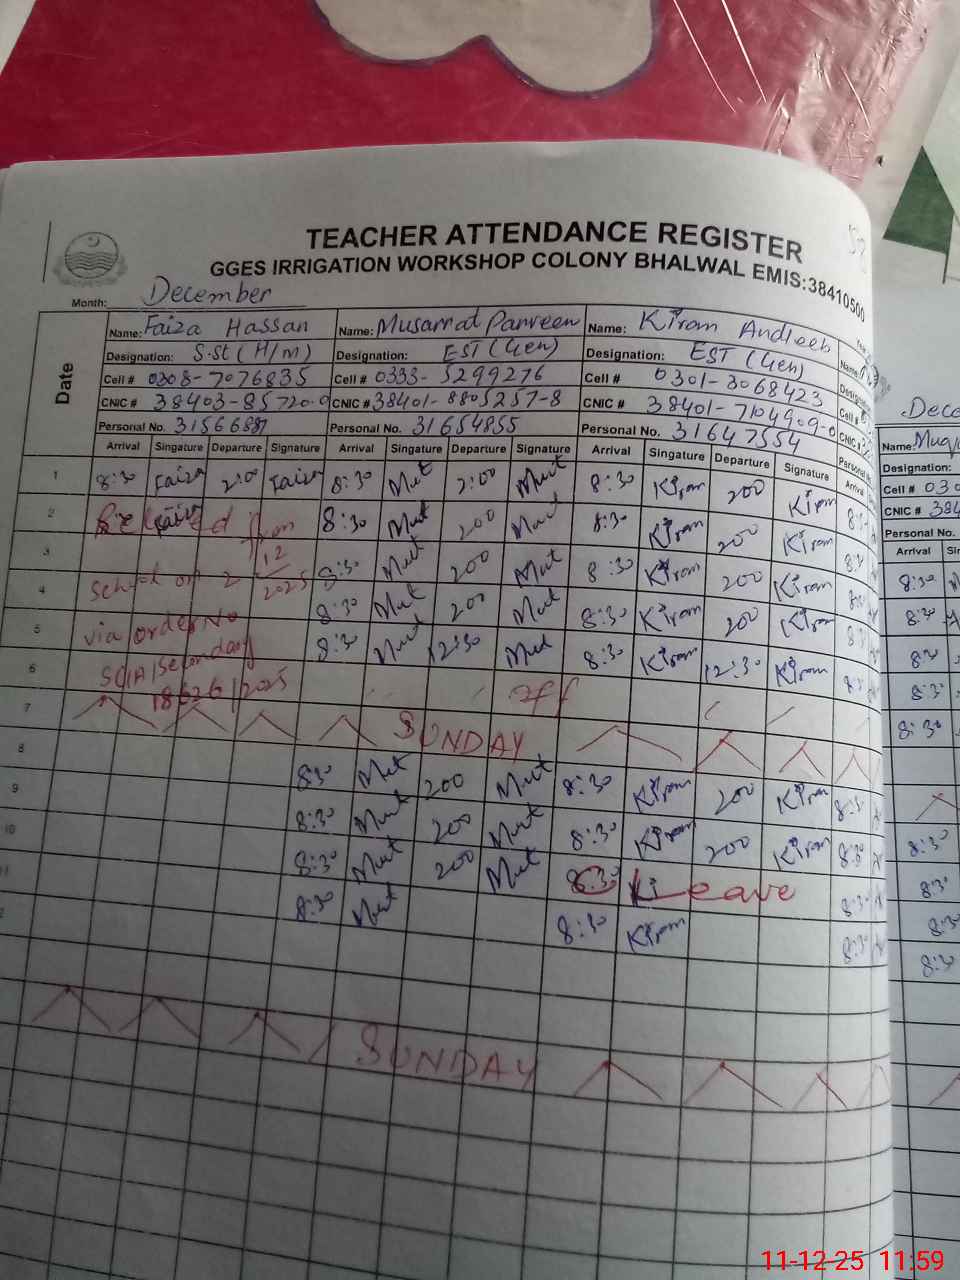 TEACHER ATTENDANCE REGISTER
GGES IRRIGATION WORKSHOP COLONY BHALWAL EMIS:38410500
Month: December
Date
Name: Faiza Hassan Name: Musarrat Parveen Name: Kiran Andleeb
Designation: S.st (H/m) Designation: EST (Gen) Designation: EST (Gen)
Cell # 0308-7076835 Cell # 0333-5299276 Cell # 0301-3068423
CNIC # 38403-85720 CNIC # 38401-8805257-8 CNIC # 38401-7104909-0 CNIC #
Personal No. 31566887 Personal No. 31654855 Personal No. 31647554
Arrival Singature Departure Signature Arrival Singature Departure Signature Arrival Singature Departure Signature Arrival
1 8:30 Faiza 2:00 Faiza 8:30 Mut 2:00 Mut 8:30 Kiran 200 Kiran
2 Relieved from 8:30 Mut 200 Mut 8:30 Kiran 200 Kiran
3 school on 2 12 2025 8:30 Mut 200 Mut 8:30 Kiran 200 Kiran
4 via order No 8:30 Mut 200 Mut 8:30 Kiran 200 Kiran
5 SOIA/Secondary 8:30 Mut 12:30 Mut 8:30 Kiran 12:30 Kiran
6 /2025 off
7 SUNDAY
8 830 Mut 200 Mut 8:30 Kiran 200 Kiran 8:30
9 8:30 Mut 200 Mut 8:30 Kiran 200 Kiran 8:30
10 8:30 Mut 200 Mut 8:30 Leave 8:30
8:30 Mut 8:30 Kiran 8:30
SUNDAY
Name:
Designation:
Cell # 030
CNIC # 384
Personal No.
Arrival
8:30
8:30
8:30
8:30
8:30
8:30
8:30
8:30
8:30
11-12-25 11:59